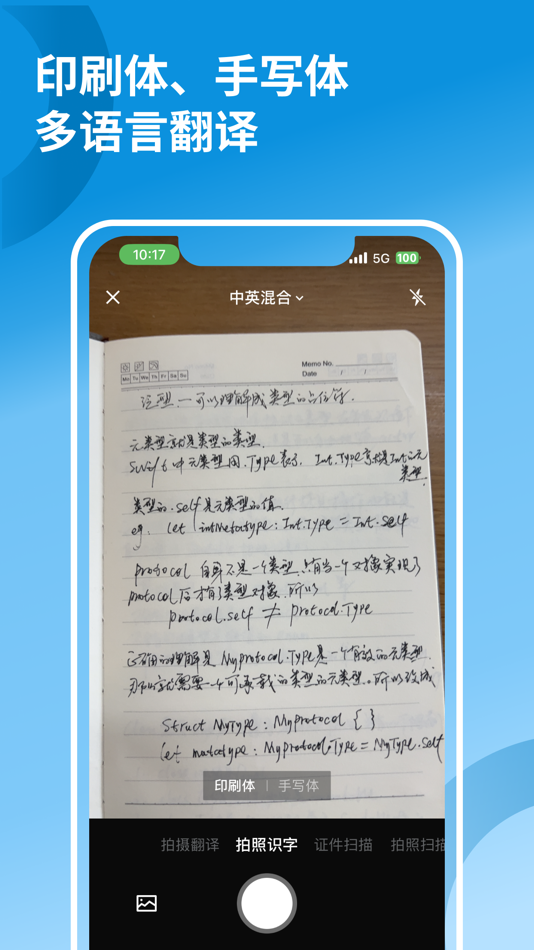 印刷体、手写体
多语言翻译
10:17
5G 100
中英混合
Memo No:
Mo Tu We Th Fr Sa Su
Date / /
泛型 一 可以理解成类型的占位符.
元类型就是类型的类型.
Swift 中元类型用 .Type表示, Int.Type就是Int的元
类型.
类型的 .self 是元类型的值.
eg. let intMetatype: Int.Type = Int.self
protocol 自身不是一个类型, 只有当一个对象实现了
protocol后才有了类型对象. 所以
portocol.self ≠ protocol.Type
正确的理解是 Myprotocol.Type是一个有效的元类型.
那么就需要一个可承载的类型的元类型。所以改成
Struct MyType: Myprotocol { }
let matatype: Myprotocol.Type = MyType.self
印刷体 | 手写体
拍摄翻译 拍照识字 证件扫描 拍照扫描